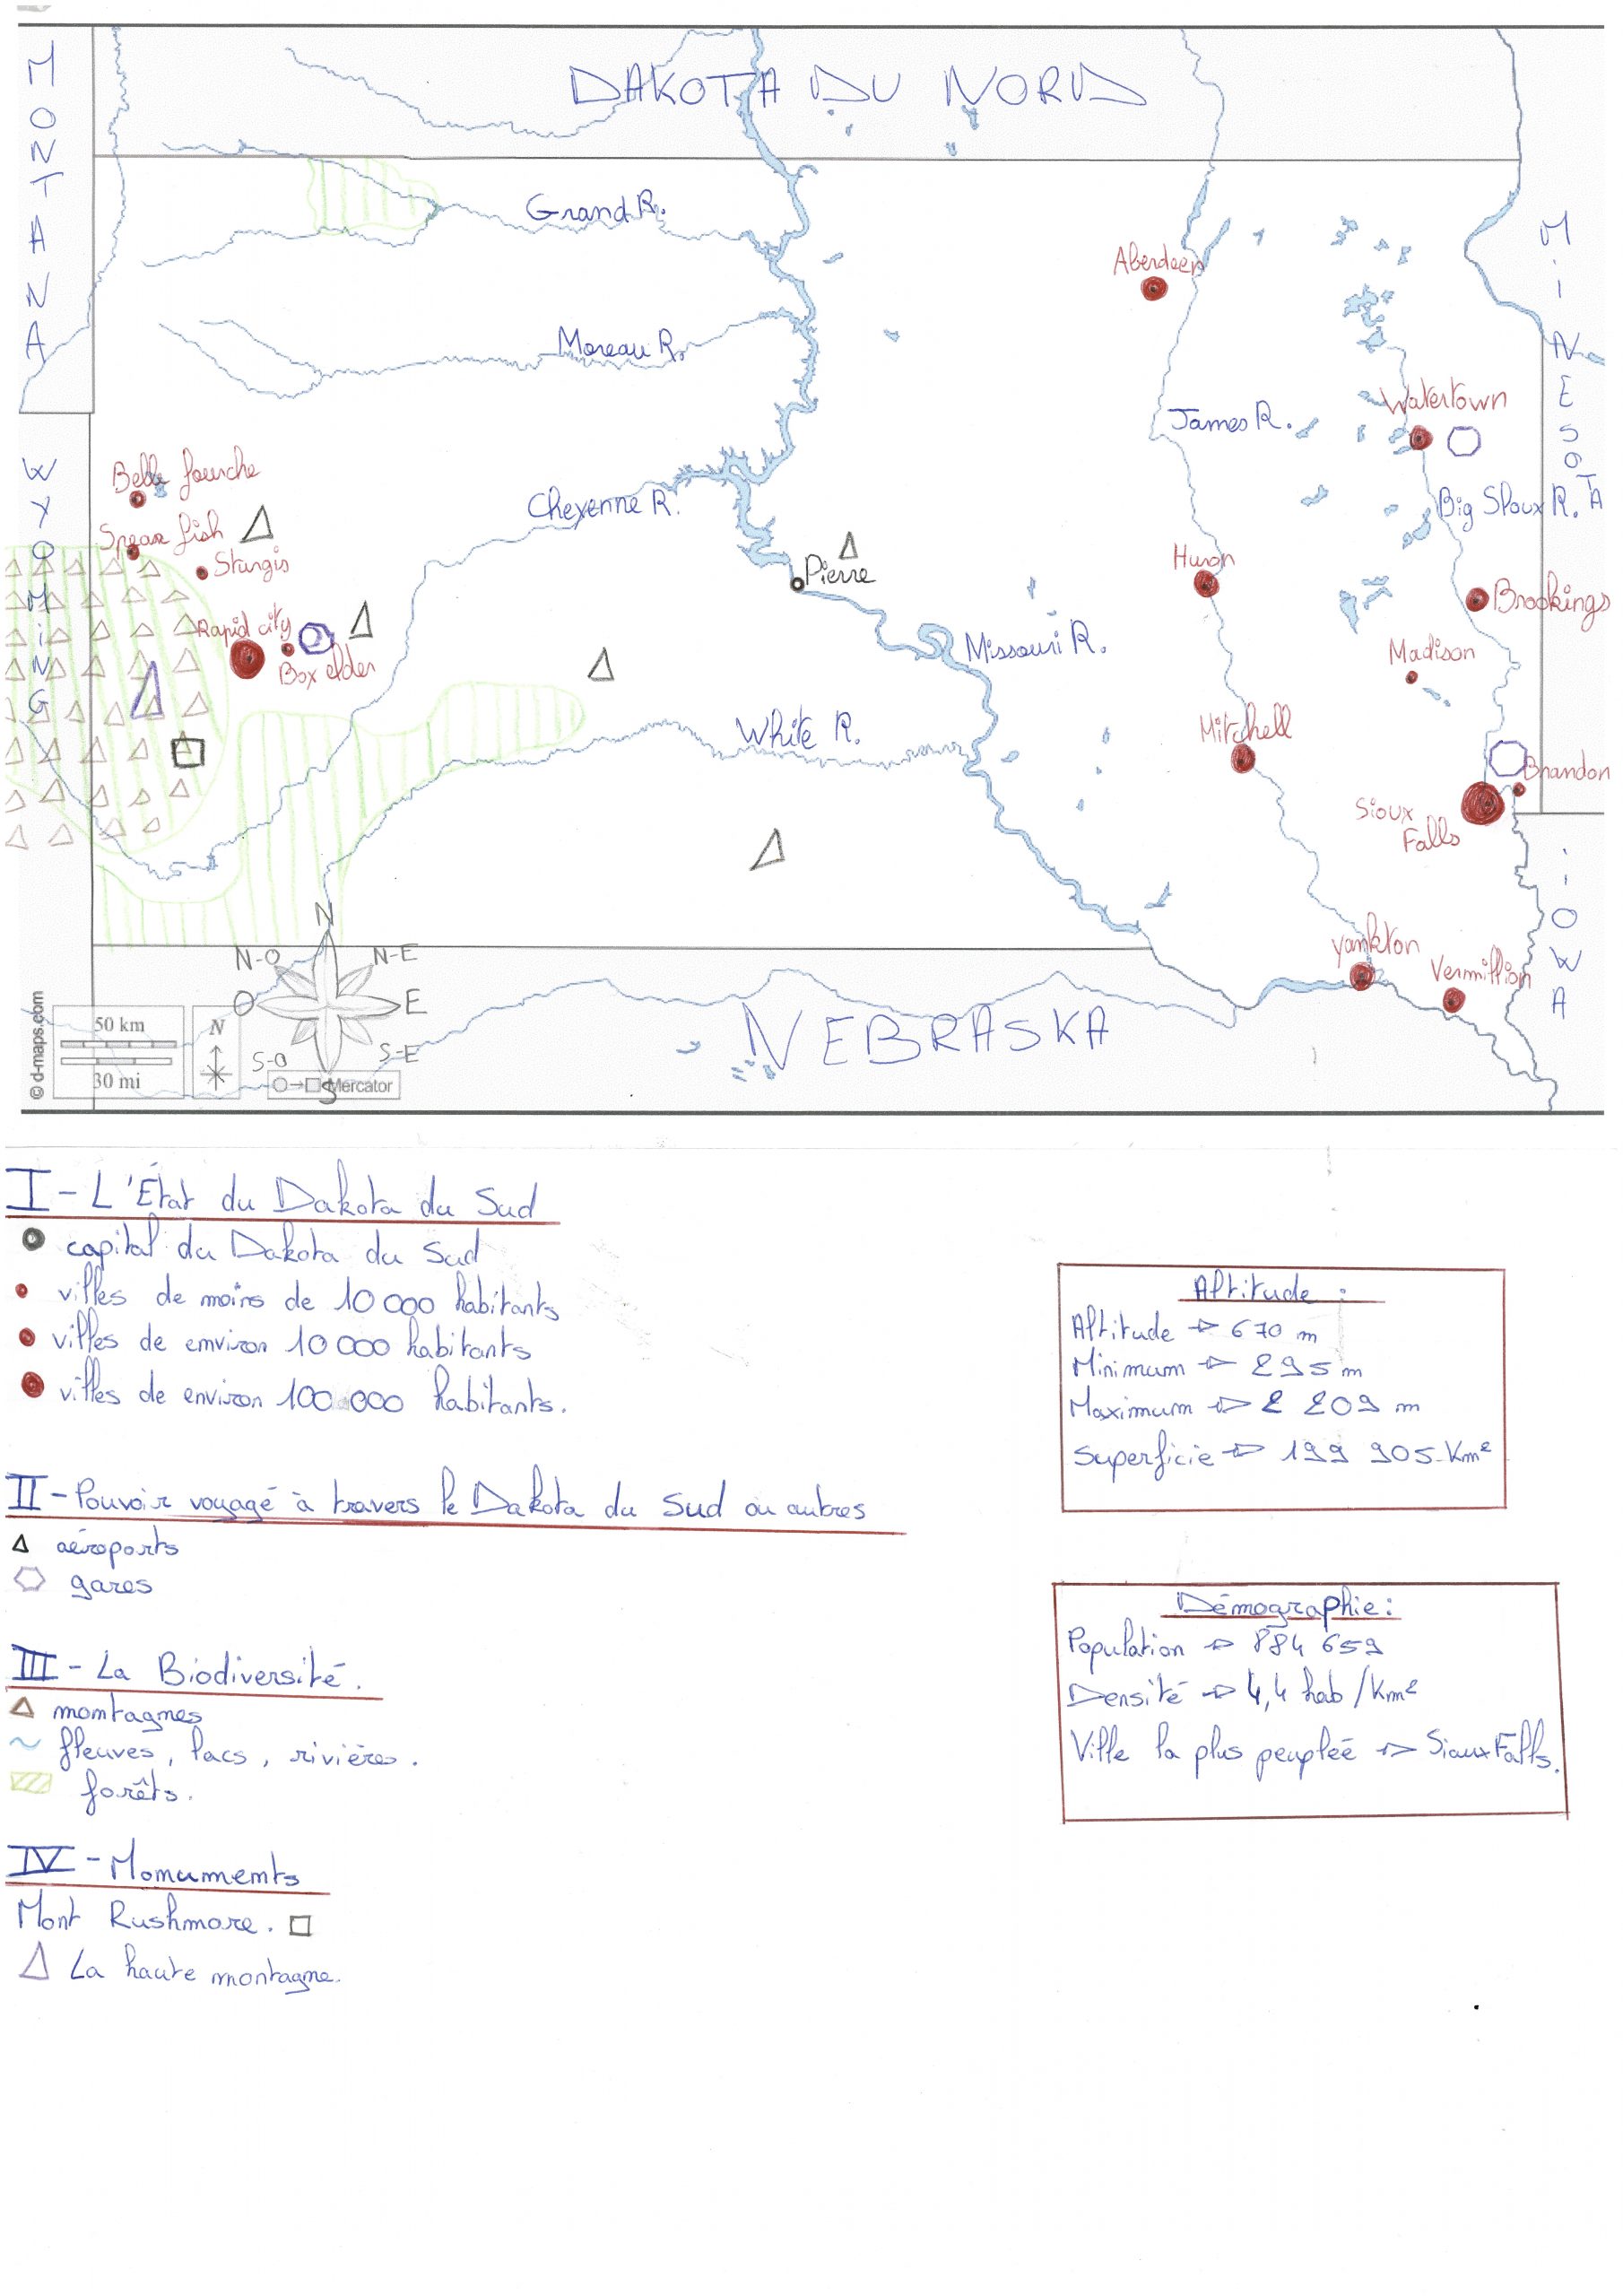 MONTANA
DAKOTA DU NORD
Grand R.
Moreau R.
Aberdeen
MiNESOTA
James R.
Watertown
WYOMiNG
Belle fourche
Spearfish
Sturgis
Cheyenne R.
Pierre
Big Sioux R.
Huron
Brookings
Rapid city
Box elder
Missouri R.
Madison
White R.
Mitchell
Brandon
Sioux
Falls
iOWA
Yankton
Vermillion
NEBRASKA
N
N-O
N-E
O
E
S-O
S-E
S
© d-maps.com
50 km
30 mi
N
Mercator
I - L'État du Dakota du Sud
capital du Dakota du Sud
villes de moins de 10 000 habitants
villes de emviron 10 000 habitants
villes de environ 100 000 habitants.
II - Pouvoir voyagé à travers le Dakota du Sud ou autres
aéroports
gares
III - La Biodiversité.
montagnes
fleuves, lacs, rivières.
forêts.
IV - Monuments
Mont Rushmore.
La haute montagne.
Altitude :
Altitude → 670 m
Minimum → 295 m
Maximum → 2 209 m
Superficie → 199 905 Km²
Démographie :
Population → 884 659
Densité → 4,4 hab/Km²
Ville la plus peupléé → Sioux Falls.